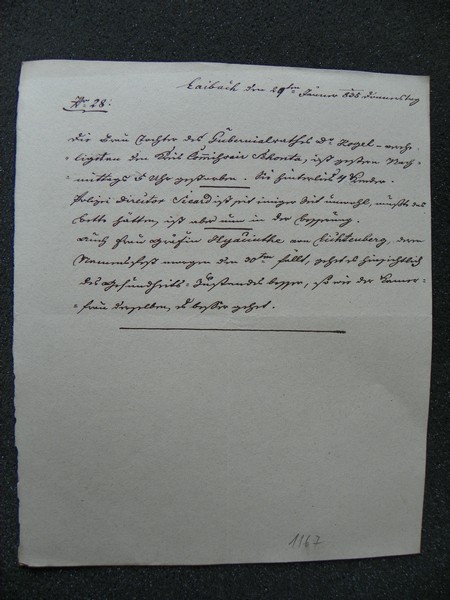 Laibach den 29ten Jänner 835 Donnerstag
Nr 28:
Die Frau Tochter des Gubernialrathes Dr. Kogel - verehe-
ligten den Kreis Commissair, ist gestern Nach-
mittags 5 Uhr gestorben. Sie hinterließ 4 Kinder.
Polizei Director Sicard ist seit einiger Zeit unwohl, mußte das
Bette hüthen, ist aber nun in der Besserung.
Auch Frau Gräfin Hyacinthe von Lichtenberg, deren
Namensfest morgen den 30ten fällt, geht es hinsichtlich
des Gesundheits-Zustandes besser, so wie der Kamer-
frau derselben, es besser gehet.
1167